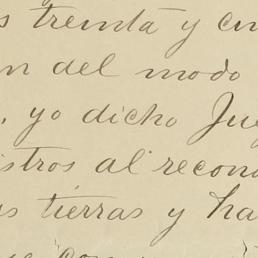 s treinta y cin
n del modo
, yo dicho Jue
istros al recono
as tierras y ha